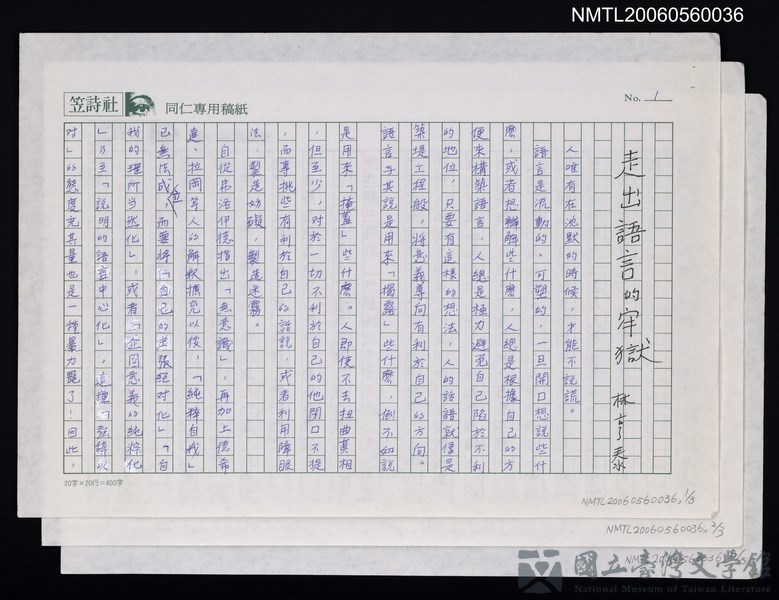 NMTL20060560036
笠詩社
同仁專用稿紙
No. 1
走出語言的牢獄
林亨泰
人唯有在沈默的時候，才能不說謊。
語言是流動的、可塑的，一旦開口想說些什
麼，或者想辯解些什麼，人總是根據自己的方
便來構築語言，人總是極力避免自己陷於不利
的地位，只要有這樣的想法，人的話語就像是
築堤工程般，將意義導向有利於自己的方向。
語言与其說是用來「揭露」些什麼，倒不如說
是用來「掩蓋」些什麼。人即使不去扭曲真相
，但至少，對於一切不利於自己的他閉口不提
，而專挑些有利於自己的話說，或者利用障眼
法，製造妨礙，製造迷霧。
自從弗洛伊德指出「無意識」，再加上德希
達、拉岡等人的解釈擴充以後，「純粹自我」
已無法成立，而要將「自己的主張絕對化」「自
我的理所当然化」，或者「企図意義的純粹化
」乃至「說明的語言中心化」，這種
對」的態度充其量也是一種暴力罷了！因此，
20字×20行=400字
NMTL20060560036, 1/3
NMTL20060560036, 2/3
NMTL20060560036
國立臺灣文學館
National Museum of Taiwan Literature